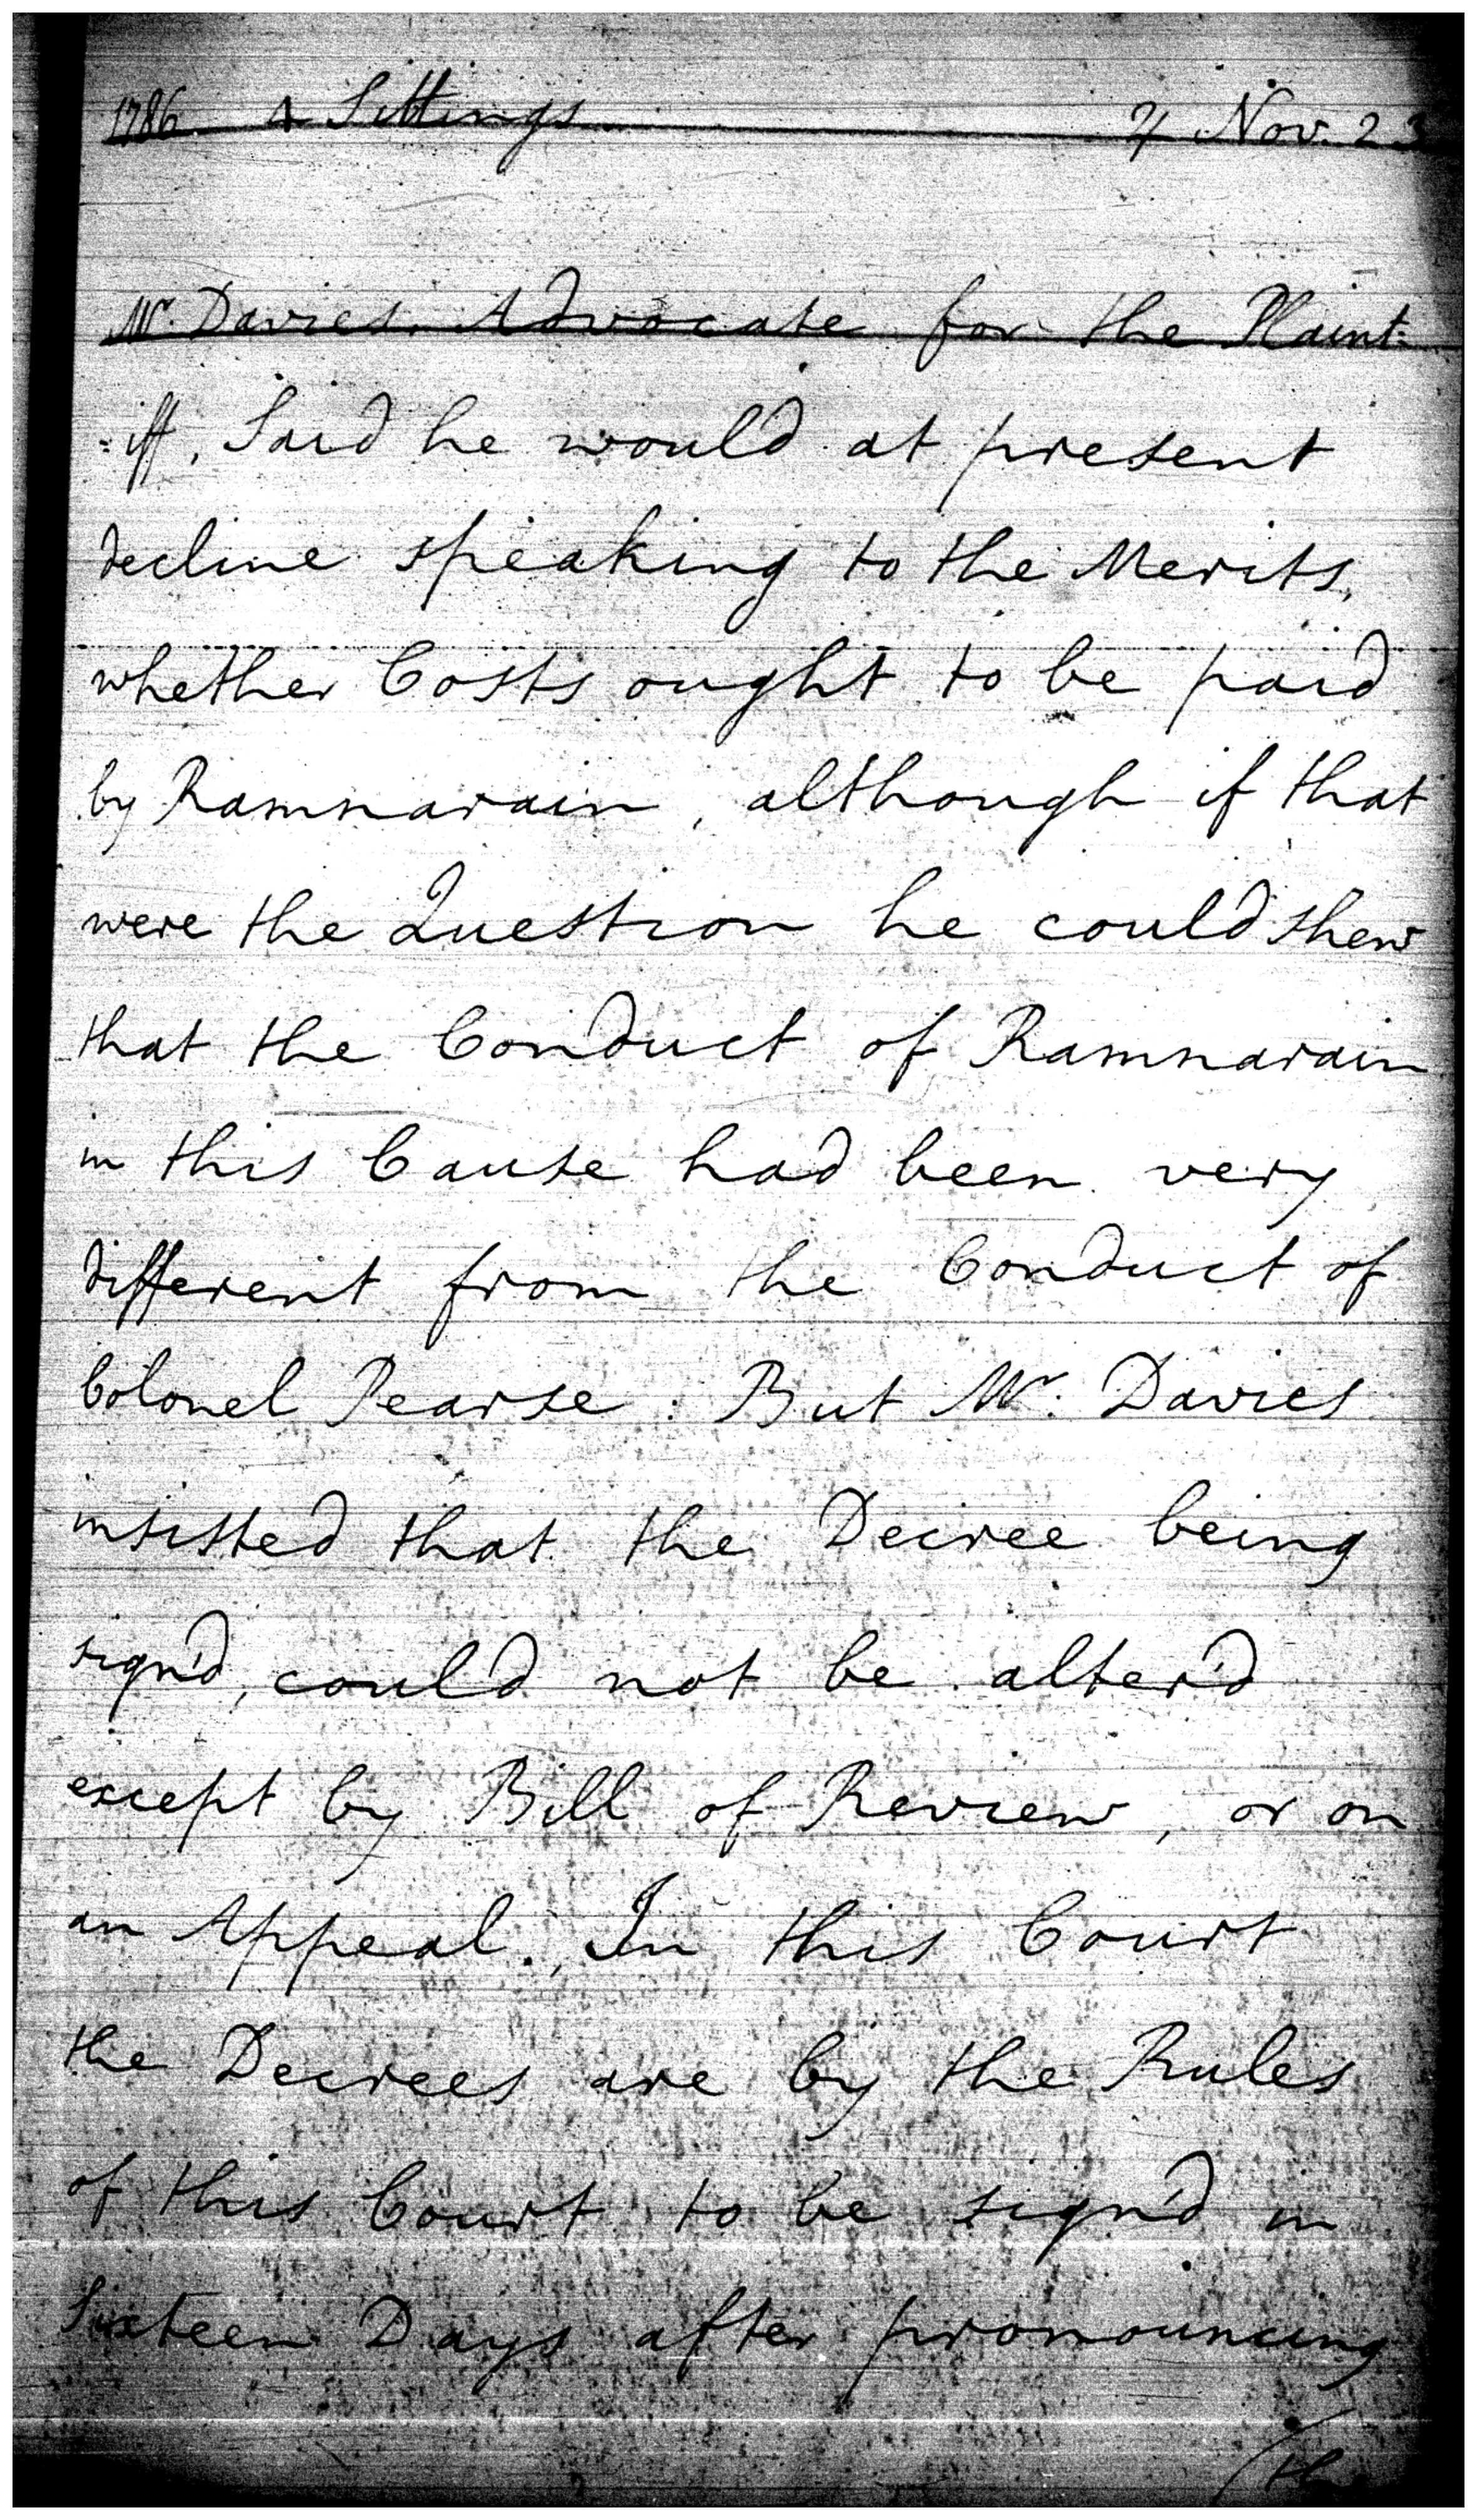 1786. 4 Sittings 4 Nov. 23
Mr. Davies, Advocate for the Plaint-
=iff, Said he would at present
decline speaking to the Merits,
whether Costs ought to be paid
by Ramnarain, although if that
were the Question he could shew
that the Conduct of Ramnarain
in this Cause had been very
different from the Conduct of
Colonel Pearse. But Mr. Davies
insisted that the Decree being
sign'd, could not be alter'd
except by Bill of Review, or on
an Appeal. In this Court
the Decrees are by the Rules
of this Court to be sign'd in
Sixteen Days after pronouncing
/the